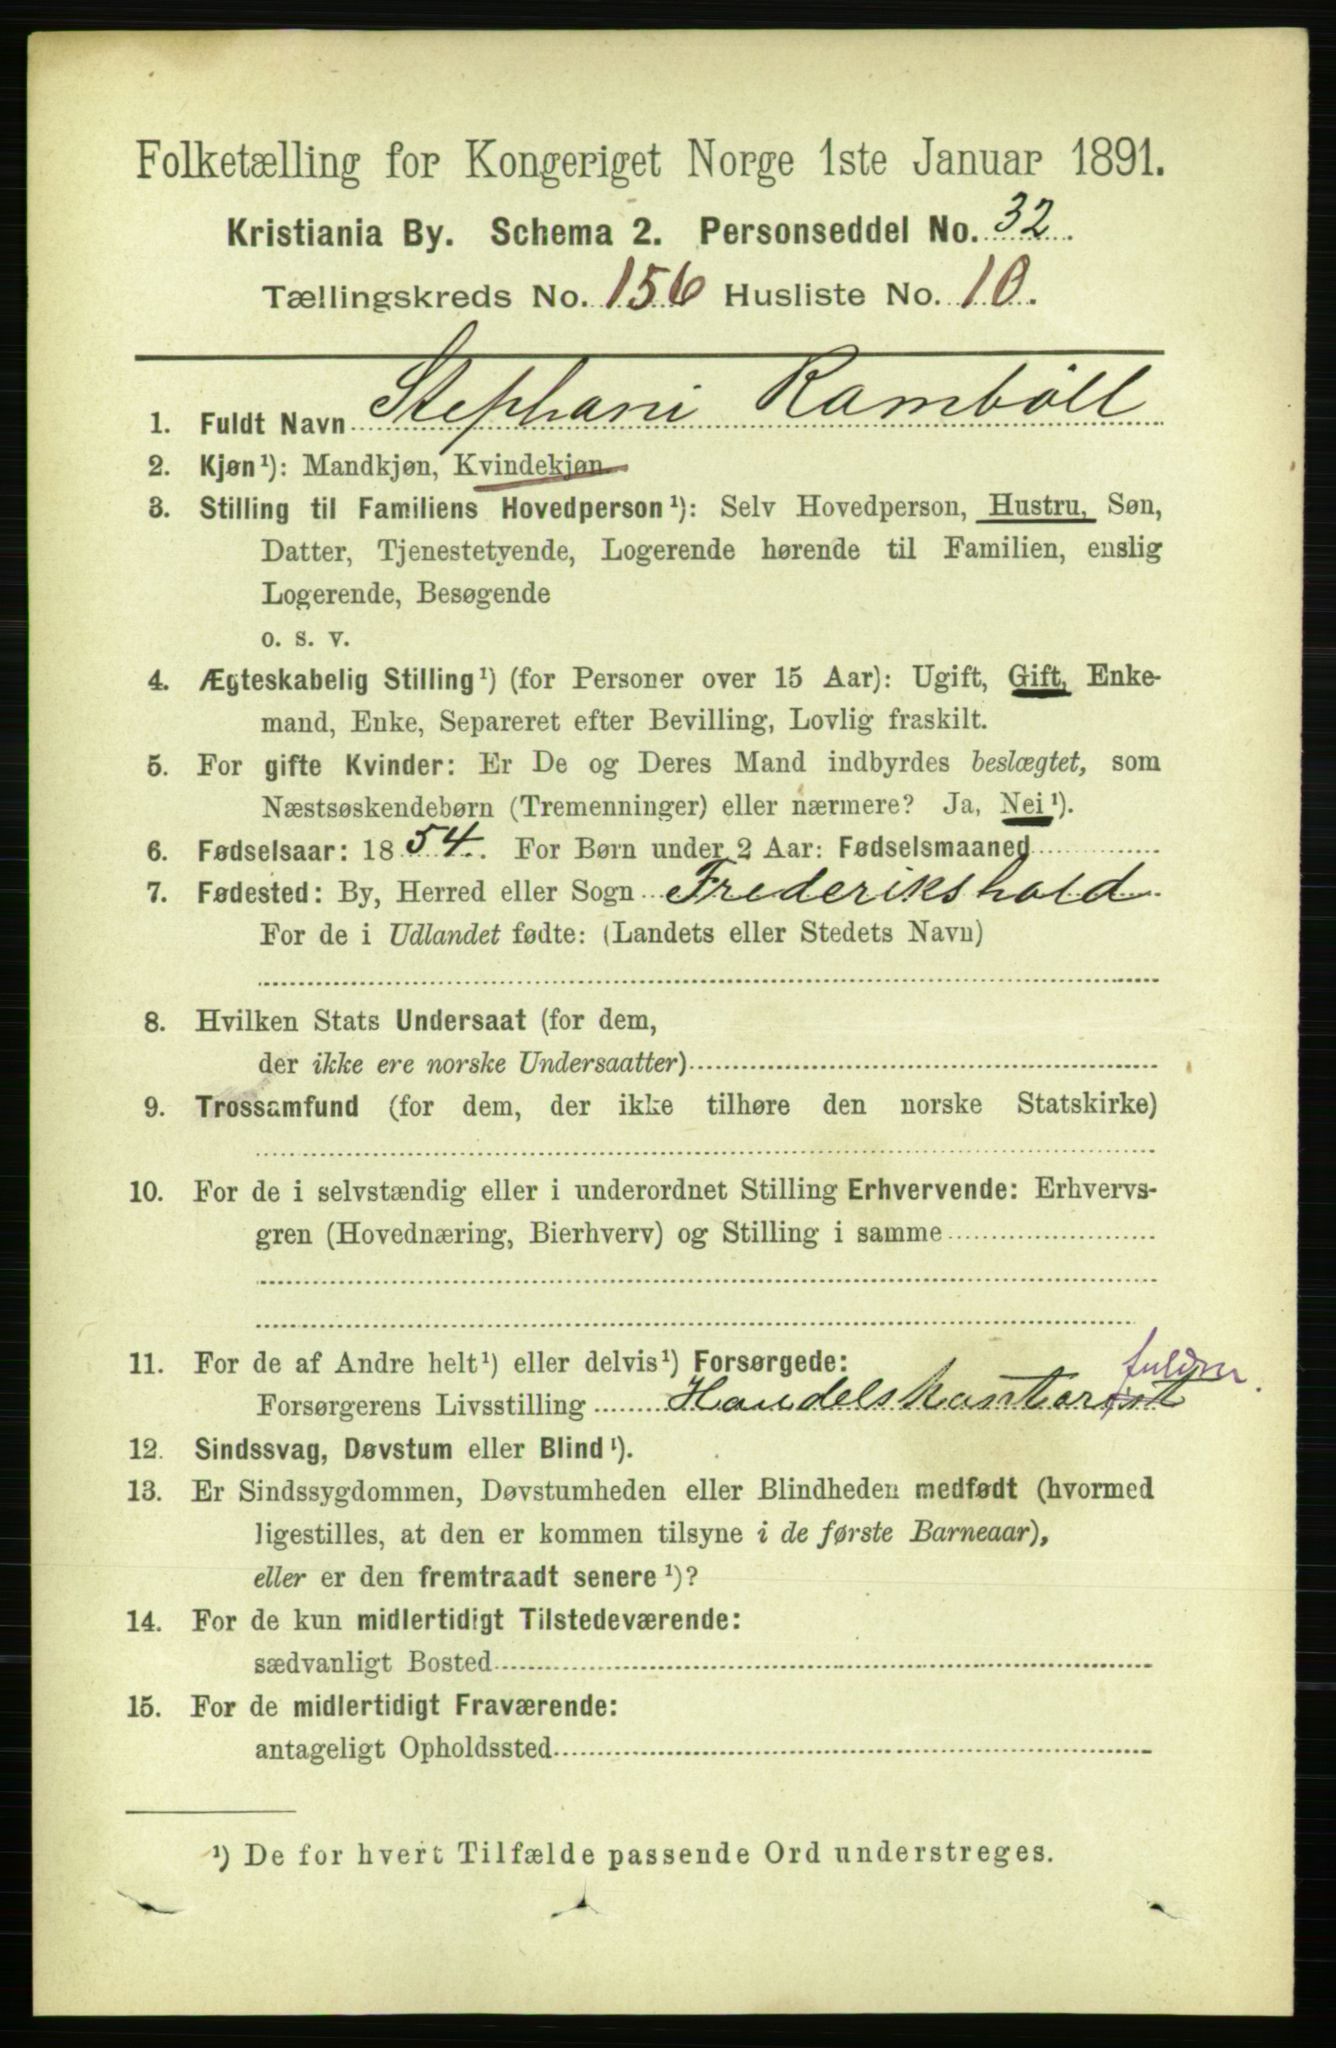 Folketælling for Kongeriget Norge 1ste Januar 1891.
Kristiania By. Schema 2. Personseddel No. 32.
Tællingskreds No. 156 Husliste No. 10.
1. Fuldt Navn Stephani Ramböll
2. Kjøn¹): Mandkjøn, Kvindekjøn
3. Stilling til Familiens Hovedperson¹): Selv Hovedperson, Hustru, Søn,
Datter, Tjenestetyende, Logerende hørende til Familien, enslig
Logerende, Besøgende
o. s. v.
4. Ægteskabelig Stilling¹) (for Personer over 15 Aar): Ugift, Gift, Enke-
mand, Enke, Separeret efter Bevilling, Lovlig fraskilt.
5. For gifte Kvinder: Er De og Deres Mand indbyrdes beslægtet, som
Næstsøskendebørn (Tremenninger) eller nærmere? Ja, Nei¹).
6. Fødselsaar: 1854. For Børn under 2 Aar: Fødselsmaaned
7. Fødested: By, Herred eller Sogn Frederikshald
For de i Udlandet fødte: (Landets eller Stedets Navn)
8. Hvilken Stats Undersaat (for dem,
der ikke ere norske Undersaatter)
9. Trossamfund (for dem, der ikke tilhøre den norske Statskirke)
10. For de i selvstændig eller i underordnet Stilling Erhvervende: Erhvervs-
gren (Hovednæring, Bierhverv) og Stilling i samme
11. For de af Andre helt¹) eller delvis¹) Forsørgede:
fuldm.
Forsørgerens Livsstilling Handelskontorist
12. Sindssvag, Døvstum eller Blind¹).
13. Er Sindssygdommen, Døvstumheden eller Blindheden medfødt (hvormed
ligestilles, at den er kommen tilsyne i de første Barneaar),
eller er den fremtraadt senere¹)?
14. For de kun midlertidigt Tilstedeværende:
sædvanligt Bosted
15. For de midlertidigt Fraværende:
antageligt Opholdssted
¹) De for hvert Tilfælde passende Ord understreges.